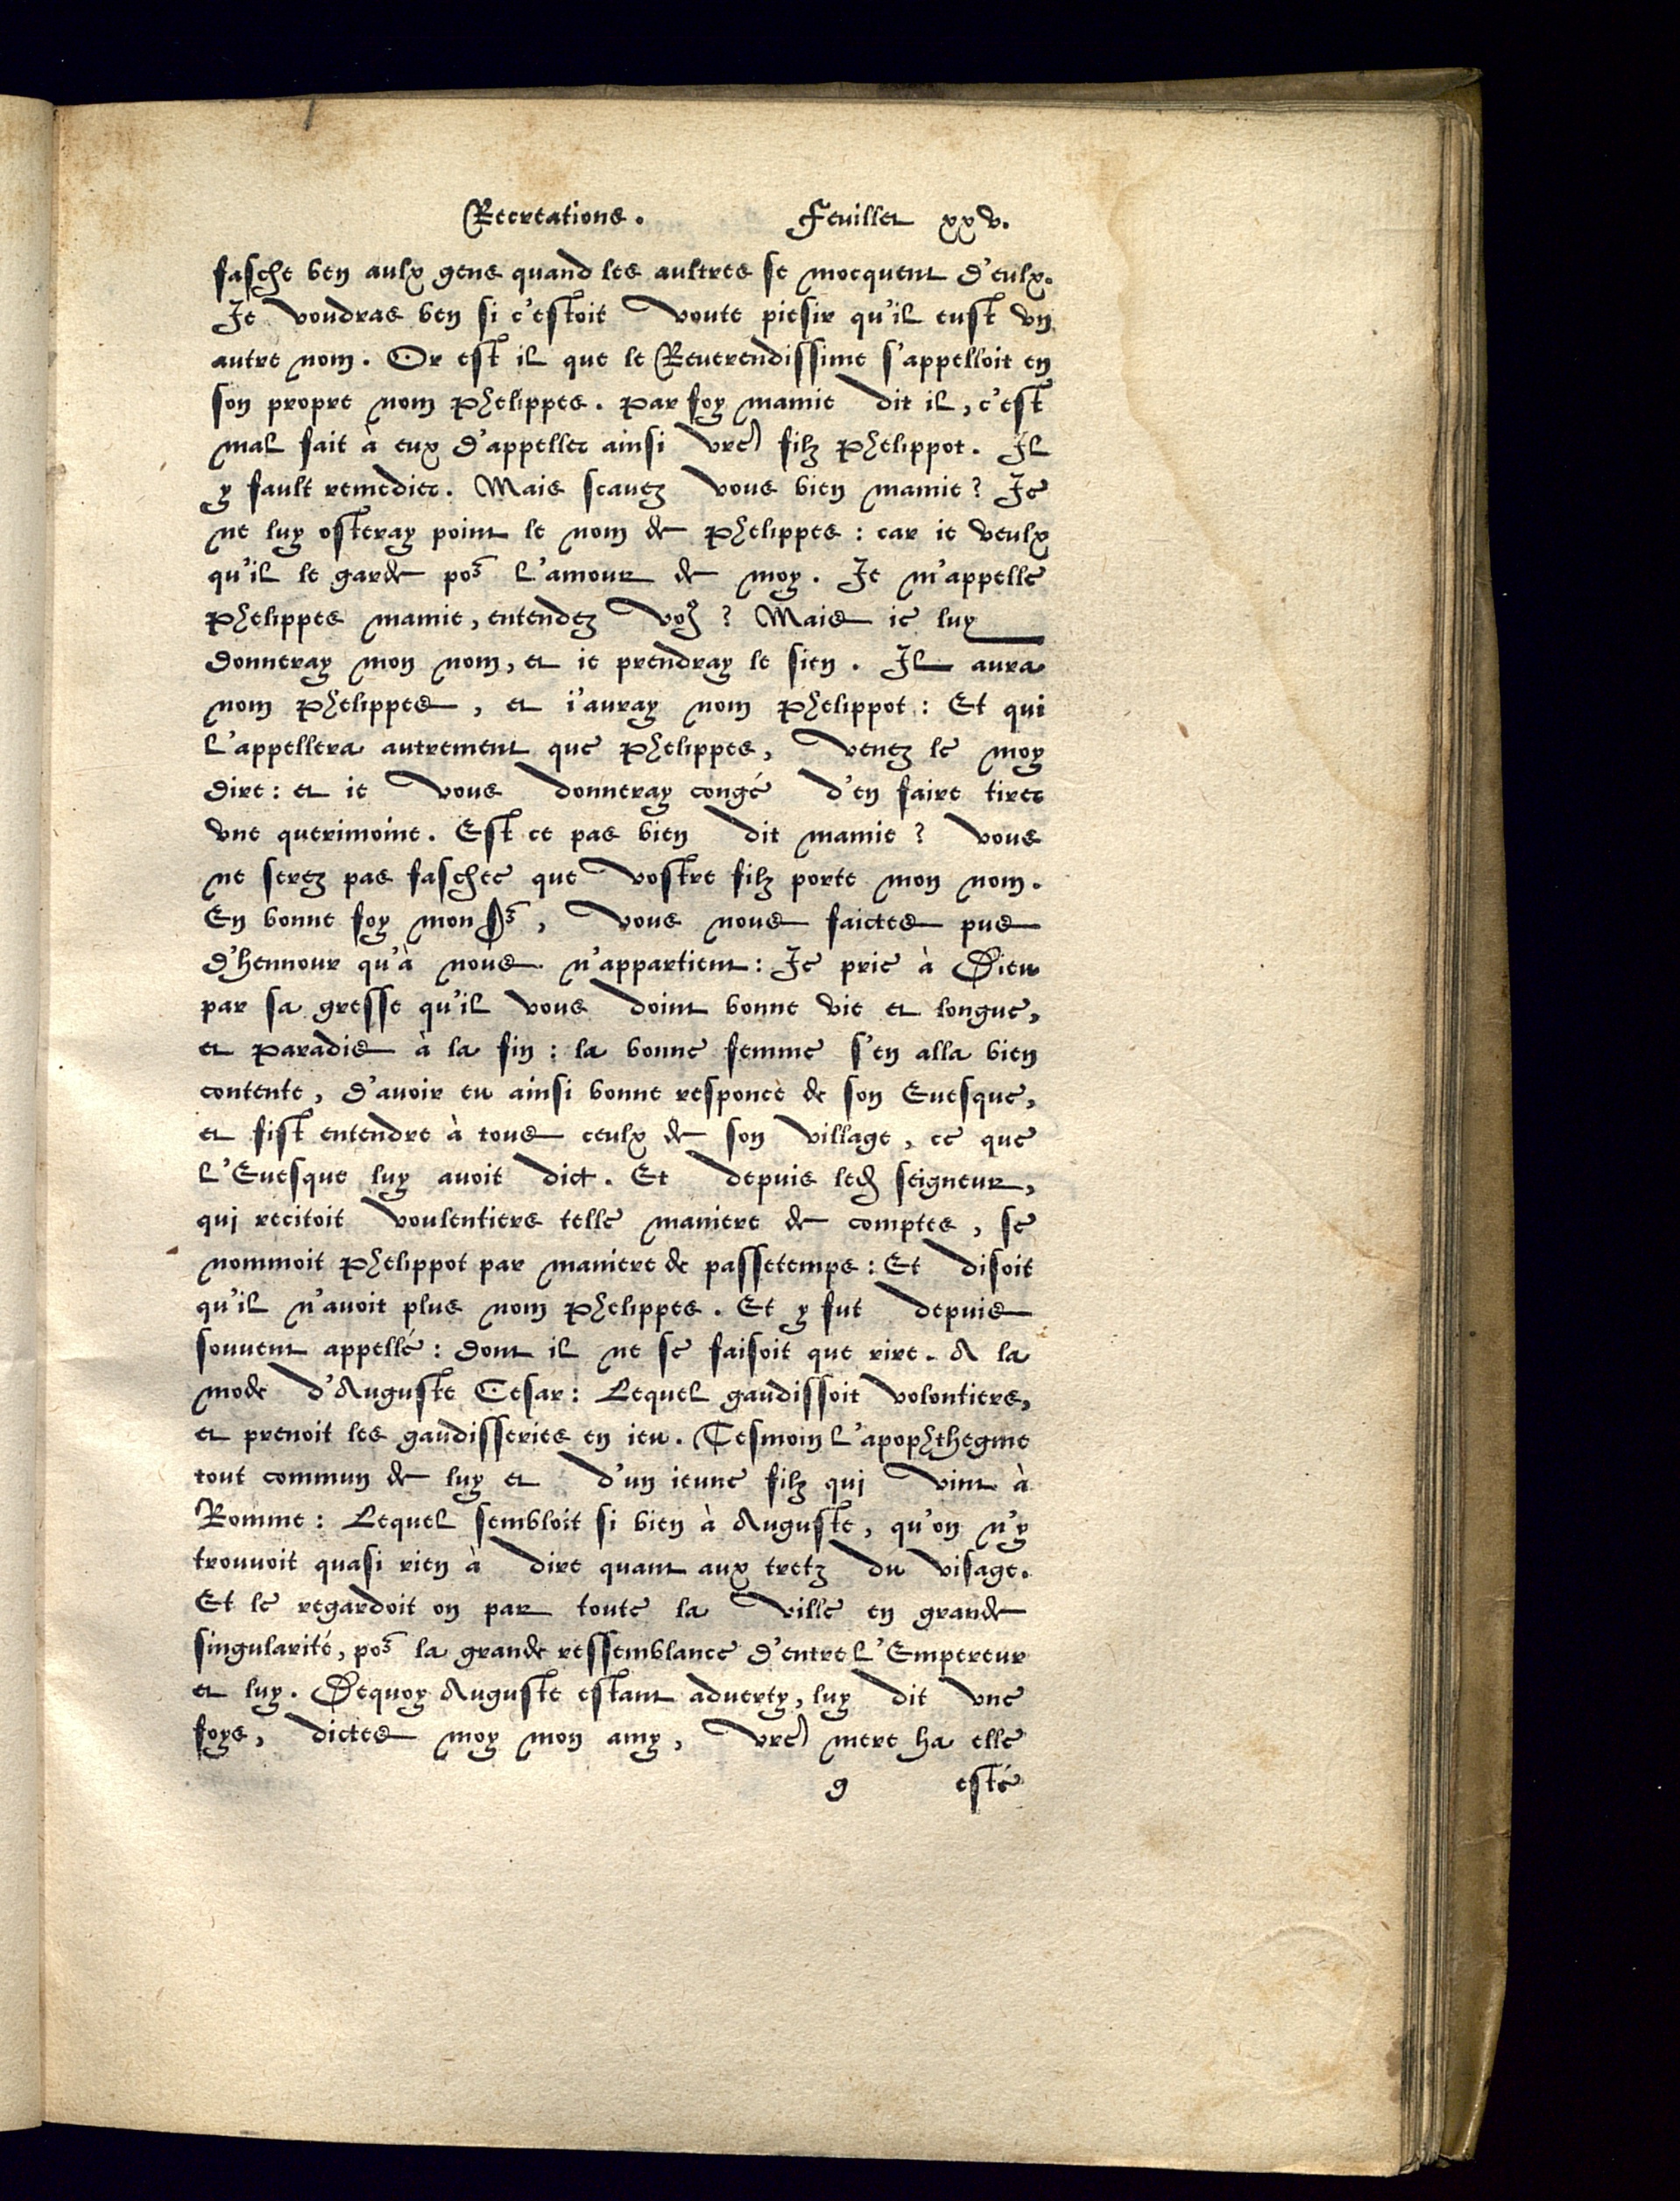 Recreations. Feuillet xxv.
fasche ben aulx gens quand les aultres se mocquent d'eulx.
Je voudras ben si c'estoit voute piesir qu'il eust vn
autre nom. Or est il que le Reuerendissime s'appelloit en
son propre nom Phelippes. Par foy mamie dit il, c'est
mal fait à eux d'appeller ainsi vre filz Phelippot. Il
y fault remedier. Mais scauez vous bien mamie? Je
ne luy osteray point le nom de Phelippes: car ie veulx
qu'il le garde po᷑ l'amour de moy. Je m'appelle
Phelippes mamie, entendez vo⁹? Mais ie luy
donneray mon nom, et ie prendray le sien. Il aura
nom Phelippes, et i'auray nom Phelippot: Et qui
l'appellera autrement que Phelippes, venez le moy
dire: et ie vous donneray congé d'en faire tirer
vne querimoine. Est ce pas bien dit mamie? vous
ne serez pas faschee que vostre filz porte mon nom.
En bonne foy mons᷑, vous nous faictes pus
d'hennour qu'à nous n'appartient: Je prie à Dieu
par sa gresse qu'il vous doint bonne vie et longue,
et Paradis à la fin: la bonne femme s'en alla bien
contente, d'auoir eu ainsi bonne responce de son Euesque,
et fist entendre à tous ceulx de son village, ce que
l'Euesque luy auoit dict. Et depuis led seigneur,
qui recitoit voulentiers telle maniere de comptes, se
nommoit Phelippot par maniere de passetemps: Et disoit
qu'il n'auoit plus nom Phelippes. Et y fut depuis
souuent appellé: dont il ne se faisoit que rire. A la
mode d'Auguste Cesar: Lequel gaudissoit volontiers,
et prenoit les gaudisseries en ieu. Tesmoin l'apophthegme
tout commun de luy et d'un ieune filz qui vint à
Romme: Lequel sembloit si bien à Auguste, qu'on n'y
trouuoit quasi rien à dire quant aux tretz du visage.
Et le regardoit on par toute la ville en grande
singularité, po᷑ la grande ressemblance d'entre l'Empereur
et luy. Dequoy Auguste estant aduerty, luy dit vne
foys, dictes moy mon amy, vre mere ha elle
g esté